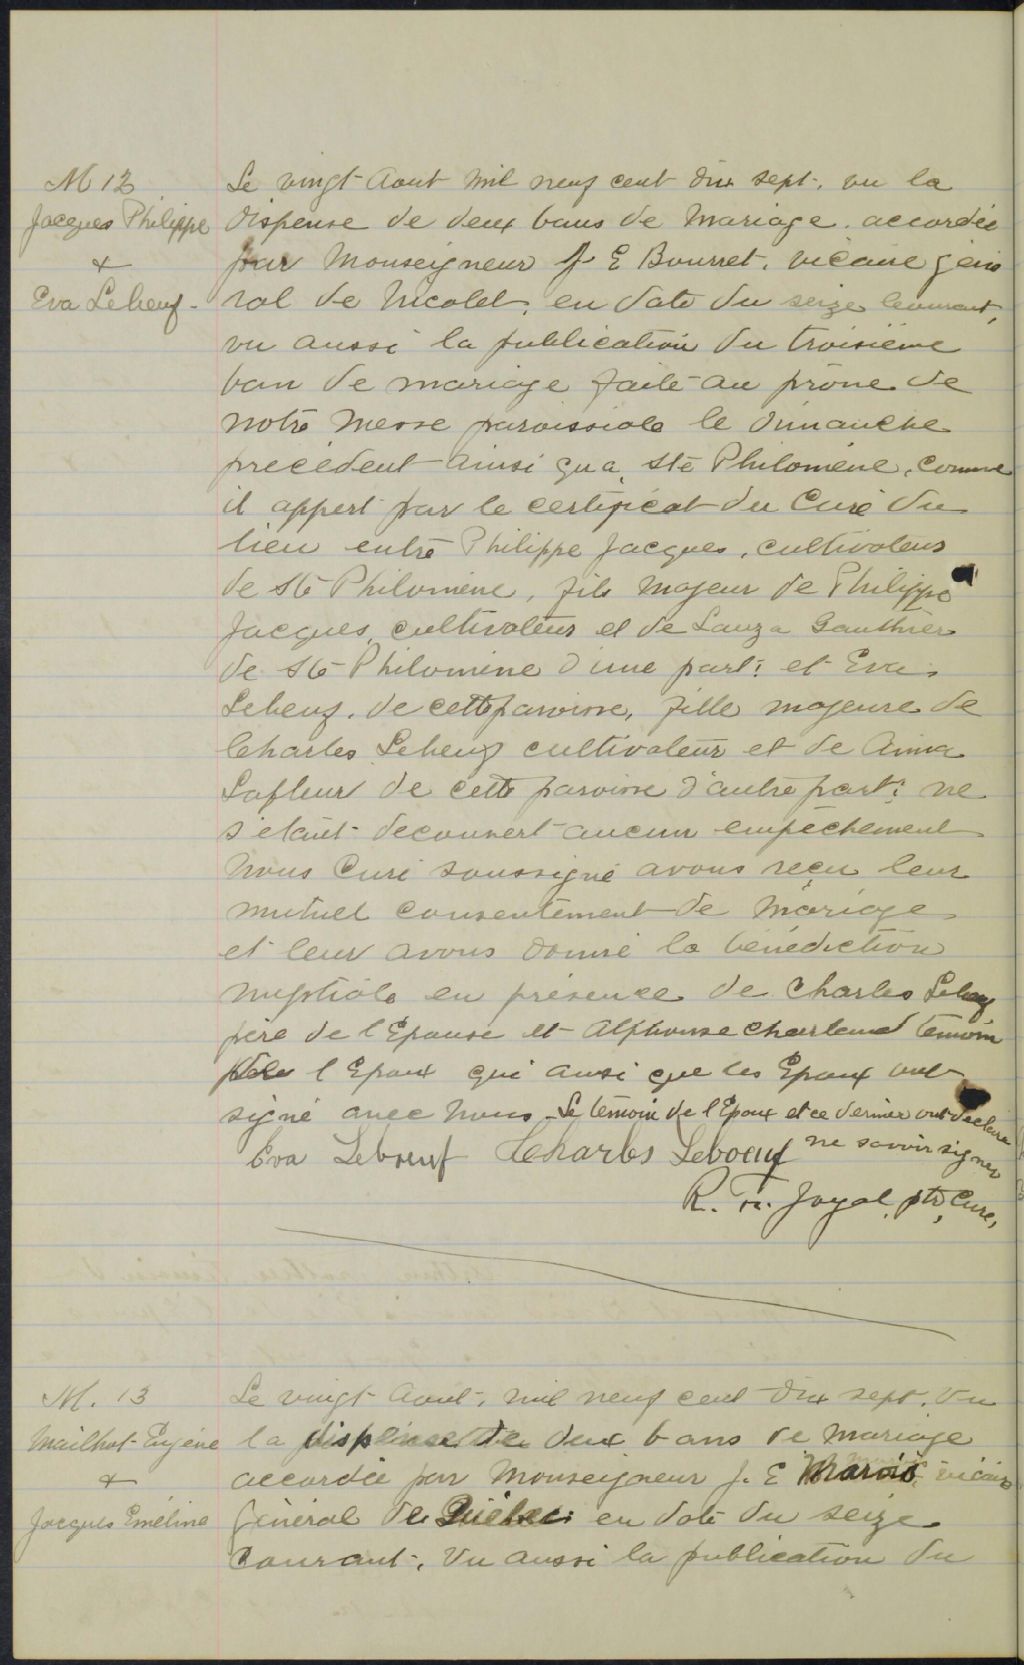 M 12
Jacques Philippe
&
Eva Lebeuf.
Le vingt Aout mil neuf cent dix sept, vu la
dispense de deux bans de mariage accordée
par Monseigneur J. E Bourret, vicaire géné
ral de Nicolet, en date du seize courant,
vu aussi la publication du troisième
ban de mariage faite au prône de
notre messe paroissiale le dimanche
precédent ainsi qu'a Ste Philomène, comme
il appert par le certificat du Curé du
lieu entre Philippe Jacques, cultivateur
de Ste Philomène, fils majeur de Philippe
Jacques, cultivateur et de Lauza Gauthier
de Ste Philomène d'une part; et Eva
Lebeuf, de cette paroisse, fille majeure de
Charles Lebeuf cultivateur et de Anna
Lafleur de cette paroisse d'autre part; ne
s'étant decouvert aucun empêchement
Nous Curé soussigné avons reçu leur
mutuel consentement de mariage
et leur avons donné la bénédiction
nuptiale en présence de Charles Lebeuf
père de l'Epouse et Alphonse Charland témoin
de l'Epoux qui ausi que les Epoux ont
signé avec Nous. Le témoin de l'Epoux et ce dernier ont declaré
ne savoir signer
Eva Leboeuf Charles Leboeuf
R. Fr. Joyal, ptre, Curé,
M. 13
Mailhot Eugène
&
Jacques Eméline
Le vingt Aout, mil neuf cent dix sept, vu
la dispense de deux bans de mariage
accordée par Monseigneur J. E Marois, vicaire
Général de Québec en date du seize
courant, vu aussi la publication du